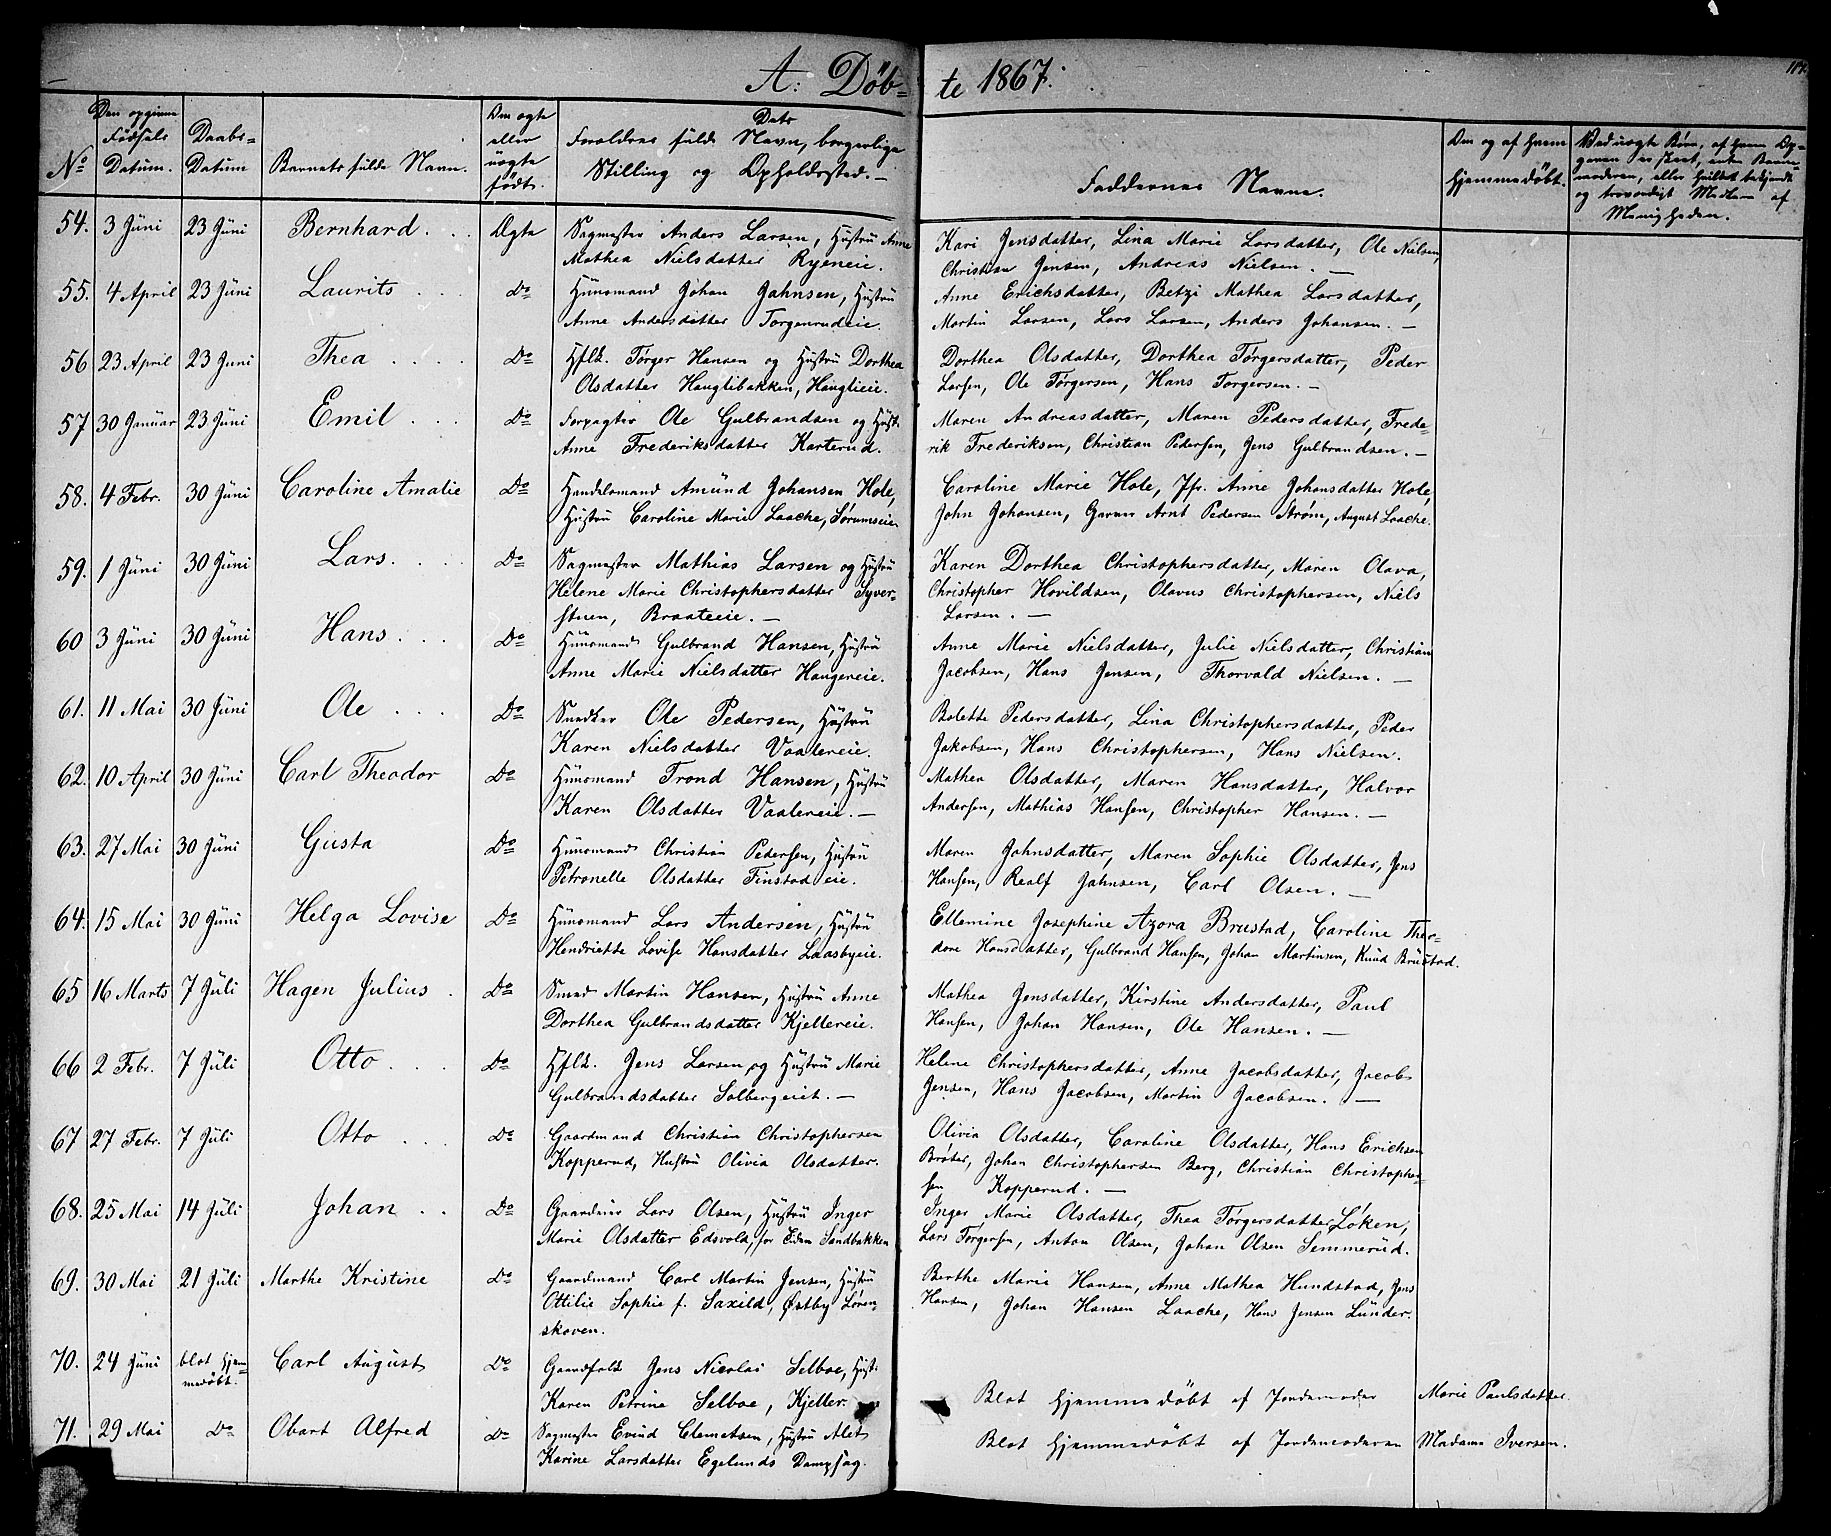 A: Døb-te 1867.
No
Den opgivne Fødsels Datum.
Daabs-Datum
Barnets fulde Navn.
Om ægte eller uægte født.
Forældres fulde Navn, Dats borgerlige
Stilling og Opholdssted.
Faddernes Navne.
Om og af hvem hjemmedøbt.
54. 3 Juni 23 Juni Bernhard Ægte Sagmester Anders Larsen, Hustru Anne
Mathea Nielsdatter Ryeneie.
Kari Jensdatter, Lina Marie Larsdatter, Ole Nielsen,
Christian Jensen, Andreas Nielsen.
55. 4 April 23 Juni Laurits Do Huusmand Johan Jahnsen, Hustru
Anne Andersdatter Torgenrudeie.
Anne Erichsdatter, Betzi Mathea Larsdatter,
Martin Larsen, Lars Larsen, Anders Johansen.
56 23 April 23 Juni Thea Do Hflk. Tørger Hansen og Hustru Dorthea
Olsdatter Hauglibakken, Hauglieie.
Dorthea Olsdatter, Dorthea Tørgersdatter, Peder
Larsen, Ole Tørgersen, Hans Torgersen.
57 30 Januar 23 Juni Emil Do Forpagter Ole Gulbrandsen og Hust.
Anne Frederiksdatter Karterud.
Maren Andreasdatter, Maren Pedersdatter, Frede-
rik Frederiksen, Christian Pedersen, Jens Gulbrandsen.
58. 4 Febr. 30 Juni Caroline Amalie Do Handelsmand Amund Johansen Hole,
Hustru Caroline Marie Laache, Sørumseie
Caroline Marie Hole, Jfr. Anne Johansdatter Hole,
John Johansen, Garver Arnt Pedersen Strøm, August Laache.
59. 1 Juni 30 Juni Lars. Do Sagmester Mathias Larsen og Hustru
Helene Marie Christophersdatter Syver-
stuen, Braateeie.
Karen Dorthea Christophersdatter, Maren Olava,
Christopher Hovildsen, Olavus Christophersen, Niels
Larsen.
60 3 Juni 30 Juni Hans Do Huusmand Gulbrand Hansen, Hustru
Anne Marie Nielsdatter Haugereie.
Anne Marie Nielsdatter, Julie Nielsdatter, Christian
Jacobsen, Hans Jensen, Thorvald Nielsen.
61. 11 Mai 30 Juni Ole Do Snedker Ole Pedersen, Hustru
Karen Nielsdatter Vaalereie.
Bolette Pedersdatter, Lina Christophersdatter, Peder
Jakobsen, Hans Christophersen, Hans Nielsen.
62. 10 April 30 Juni Carl Theodor Do Huusmand Trond Hansen, Hustru
Karen Olsdatter Vaalereie.
Mathea Olsdatter, Maren Hansdatter, Halvor
Andersen, Mathias Hansen, Christopher Hansen.
63. 27 Mai 30 Juni Gusta Do Huusmand Christian Pedersen, Hustru
Petronelle Olsdatter Finstadeie.
Maren Johnsdatter, Maren Sophie Olsdatter, Jens
Hansen, Realf Jahnsen, Carl Olsen.
64. 15 Mai 30 Juni Helga Lovise Do Huusmand Lars Andersen, Hustru
Hendriette Lovise Hansdatter Laasbyeie.
Ellemine Josephine Azora Brustad, Caroline Theo-
dore Hansdatter, Gulbrand Hansen, Johan Martinsen, Knud Brustad.
65 16 Marts 7 Juli Hagen Julius Do Smed Martin Hansen, Hustru Anne
Dorthea Gulbrandsdatter Kjellereie.
Mathea Jensdatter, Kirstine Andersdatter, Paul
Hansen, Johan Hansen, Ole Hansen.
66 2 Febr. 7 Juli Otto Do Hflk. Jens Larsen og Hustru Marie
Gulbrandsdatter Solbergeiet.
Helene Christophersdatter, Anne Jacobsdatter, Jacob
Jensen, Hans Jacobsen, Martin Jacobsen.
67 27 Febr. 7 Juli Otto Do Gaardmand Christian Christophersen
Kopperud, Hustru Olivia Olsdatter.
Olivia Olsdatter, Caroline Olsdatter, Hans Erichsen
Bråter, Johan Christophersen Berg, Christian Christopher-
sen Kopperud.
68. 25 Mai 14 Juli Johan Do Gaardeier Lars Olsen, Hustru Inger
Marie Olsdatter Edsvold, før Eiem Sandbakken
Inger Marie Olsdatter, Thea Tørgersdatter Løken,
Lars Tørgersen, Anton Olsen, Johan Olsen Semmerud.
69. 30 Mai 21 Juli Marthe Kristine Do Gaardmand Carl Martin Jensen, Hustru
Ottilie Sophie f. Saxild, Østby Løren-
skoven.
Berthe Marie Hansen, Anne Mathea Hundstad, Jens
Hansen, Johan Hansen Laache, Hans Jensen Lunder.
70. 24 Juni blot hjem-medøbt. Carl August Do Gaardfolk Jens Nicolai Selboe, Hust.
Karen Petrine Selboe, Kjeller.
Blot hjemmedøbt af Jordemoder Marie Paulsdatter.
71. 29 Mai Do Obart Alfred Do Sagmester Evind Clemetsen, Hustru Alet
Karine Larsdatter Egelunds Dampsag.
Blot hjemmedøbt af Jordemoderen Madame Iversen.